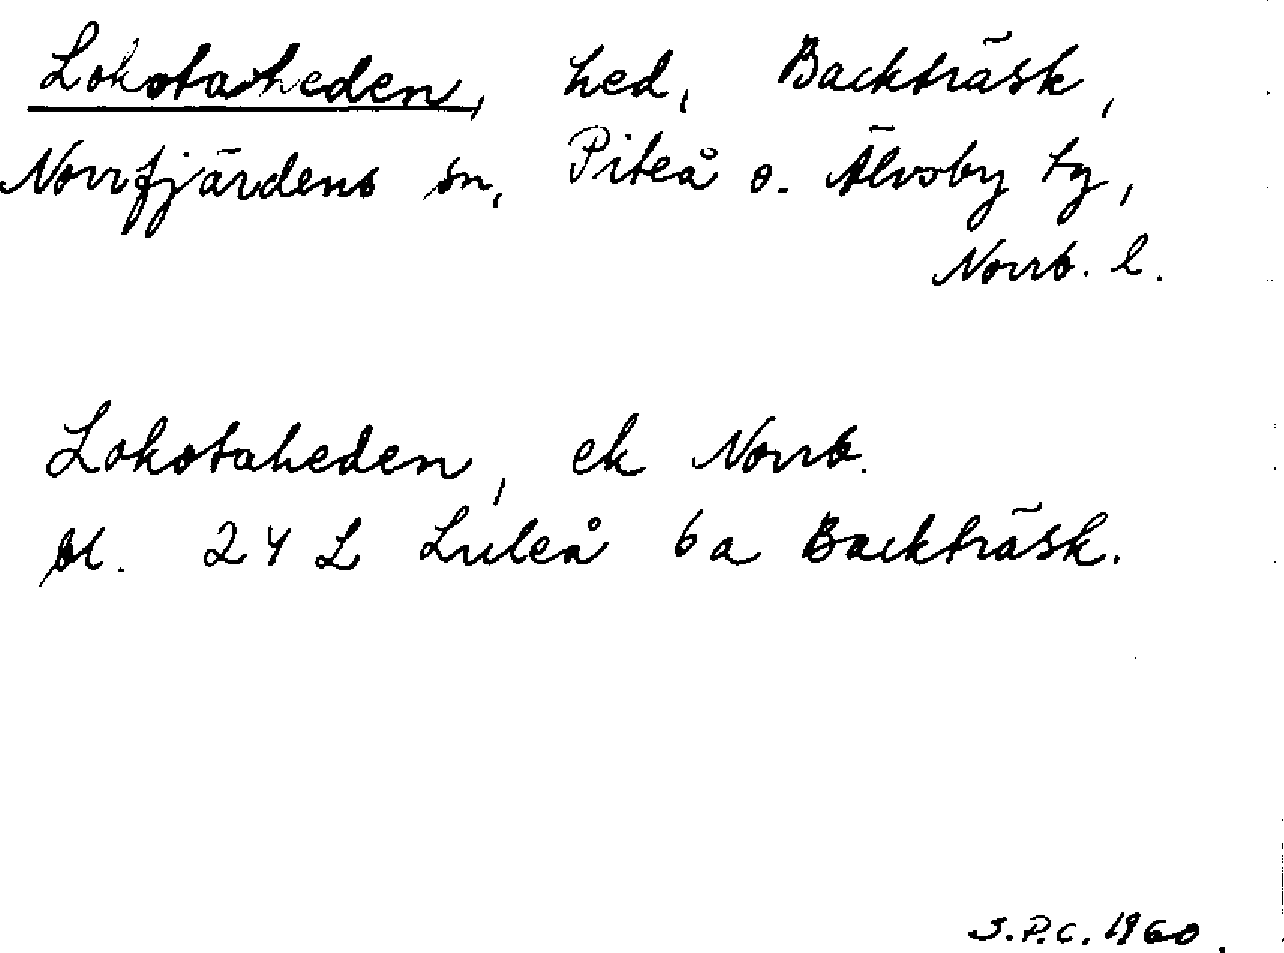 Lokstaheden, hed, Backträsk,
Norrfjärdens sn, Piteå o. Älvsby tg,
Norrb. l.
Lokstaheden, ek Norrb.
bl. 24 L Luleå 6a Backträsk.
S.P.C. 1960.